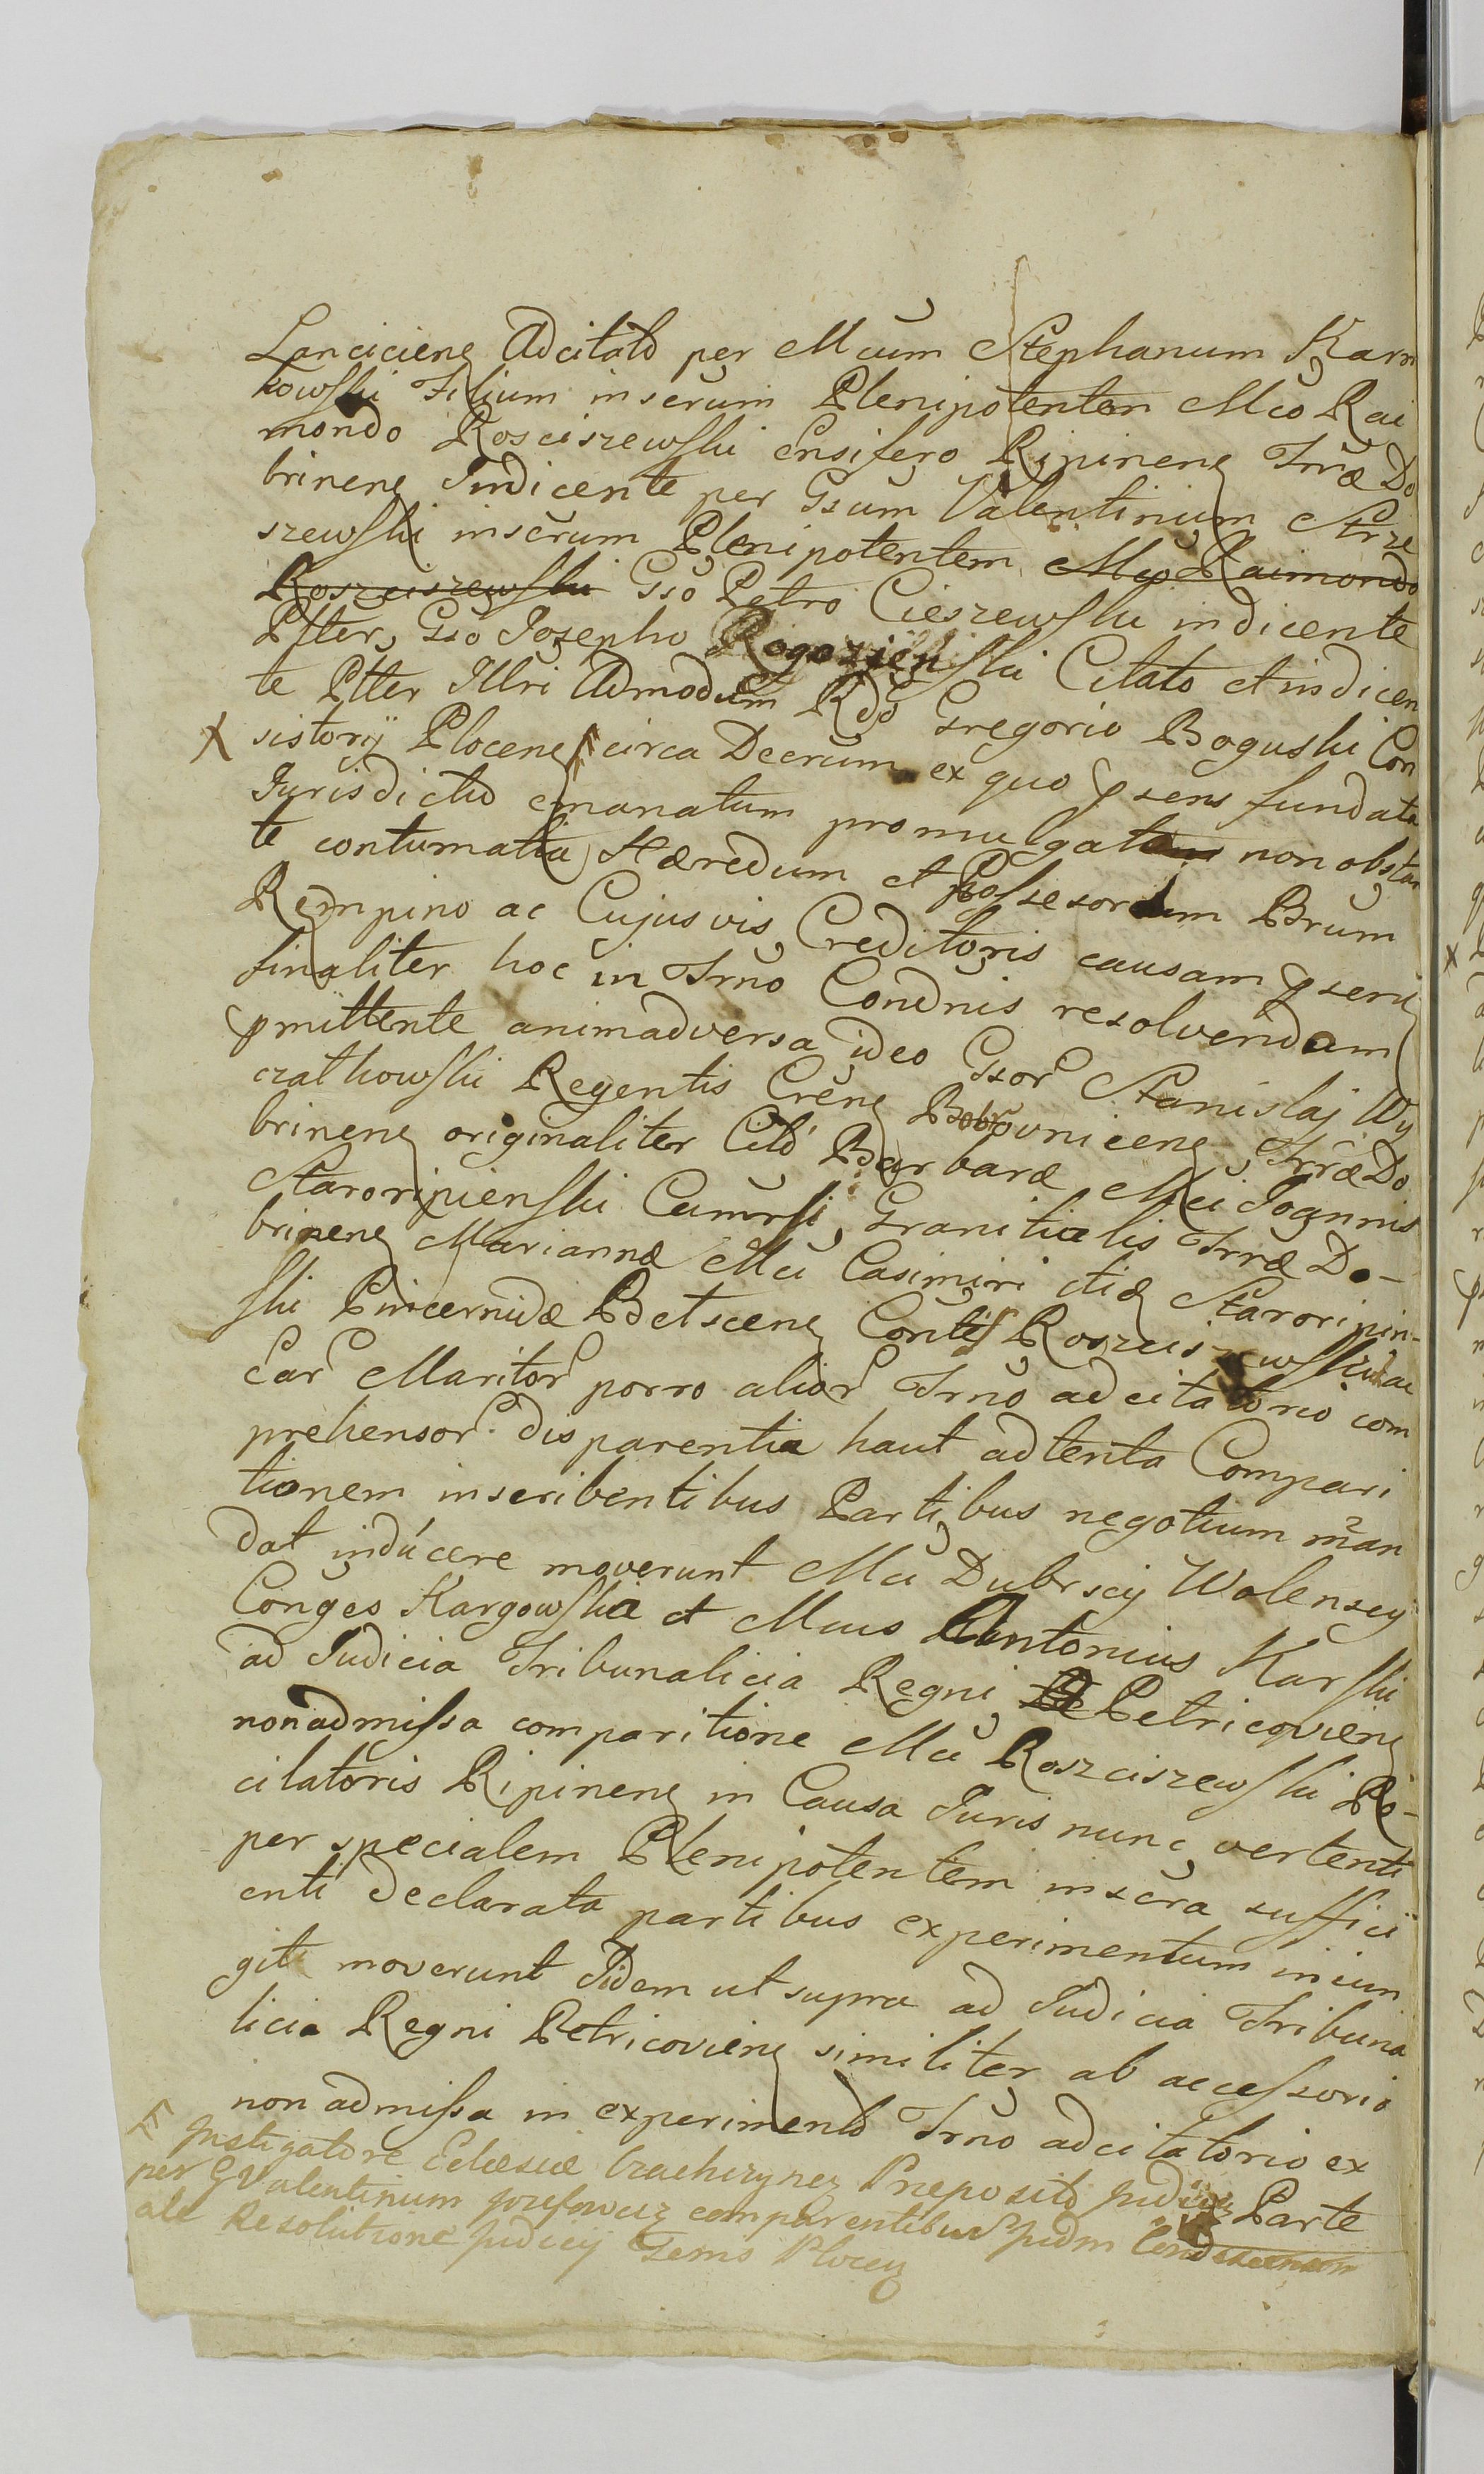 Lanciciens Adcitato per Mcum Stephanum Karn
kowski Filium inscrum Plenipotentem Mco Rai
mondo Rosciszewski Ensifero Ripinens Trræ Do
brinens Indicente per Gsum Valentinum Strze
szewski inscrum Plenipotentem Mco Raimondo
Roszciszewski Gso Petro Cieszewski indicente
Ptter, Gso Josepho Rogozienski Citato et indicen
te Ptter Illri Admodum Rdo Gregorio Boguski Con
sistorij Plocens circa Decrum ex quo præsens fundata
Jurisdictio emanatum promulgato non obstan
te contumatia Hæredum et Possesorum Brum
Rempino ac Cujusvis Creditoris causam præsen
finaliter hoc in Trno Condnis resolvendam
pmittente animadversa ideo Gsor Stanislaj Wy
czalkowski Regentis Crens Bobrovnicens Trræ Do
brinens originaliter Citti Barbaræ Mci Joannis
Staroripienski Camrsi Granitialis Trræ Do-
brinens Mariannæ Mci Casimiri itid Staroripin-
ski Pincernidæ Betscens Contis Roszciszewski ac
Ear Maritor porro alior Trno adcitatorio com
prehensor disparentia haut adtenta Compari
tionem inscribentibus Partibus negotium man
dat inducere moverunt Mci Dubrscy Wolenscy
Conges Kargowska et Mcus Antonius Karski
ad Judicia Tribunalicia Regni Petricoviens
non admissa comparitione Mci Roszciszewski Re-
citatoris Ripinens in Causa Juris nunc vertenti
per specialem Plenipotentem inscra suffici
enti declarata partibus experimentum iniun
git moverunt Iidem ut supra ad Judicia Tribuna
licia Regni Petricoviens similiter ab accessorio
non admissa in experimento Trno adcitatorio ex
Parte
Instigatore Eclesiæ Præposito
per G Valentinum comparentibus
ale Resolutione Judicij Terris Plocen